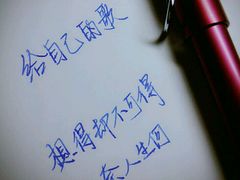 给自己的歌
想得却不可得
奈人生何